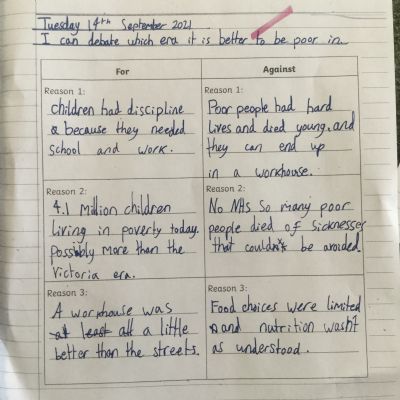 Tuesday 14th September 2021
I can debate which era it is better to be poor in.
For
Against
Reason 1:
children had discipline
& because they needed
school and work.
Reason 1:
Poor people had hard
lives and died young, and
they can end up
in a workhouse.
Reason 2:
4.1 Million children
living in poverty today.
Possibly more than the
Victoria era.
Reason 2:
No NHS So many poor
people died of Sicknesses
that couldn't be avoided.
Reason 3:
A workhouse was
at least all a little
better than the streets.
Reason 3:
Food choices were limited
and nutrition wasn't
as understood.